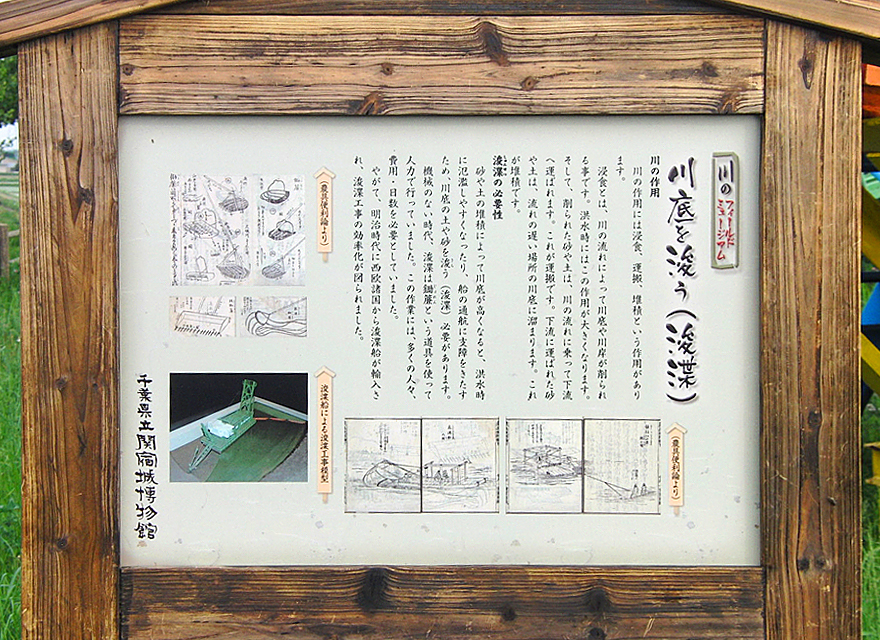 川の
フィールド
ミュージアム
川底を浚う（浚渫）
川の作用
川の作用には浸食、運搬、堆積という作用があり
ます。
浸食とは、川の流れによって川底や川岸が削られ
る事です。洪水時にはこの作用が大きくなります。
そして、削られた砂や土は、川の流れに乗って下流
へ運ばれます。これが運搬です。下流に運ばれた砂
や土は、流れの遅い場所の川底に溜まります。これ
が堆積です。
浚渫の必要性
砂や土の堆積によって川底が高くなると、洪水時
に氾濫しやすくなったり、船の通航に支障をきたす
ため、川底の土や砂を浚う（浚渫）必要があります。
機械のない時代、浚渫は鋤簾という道具を使って
人力で行っていました。この作業には、多くの人々、
費用・日数を必要としていました。
やがて、明治時代に西欧諸国から浚渫船が輸入さ
れ、浚渫工事の効率化が図られました。
（農具便利論より）
（農具便利論より）
浚渫船による浚渫工事模型
千葉県立関宿城博物館